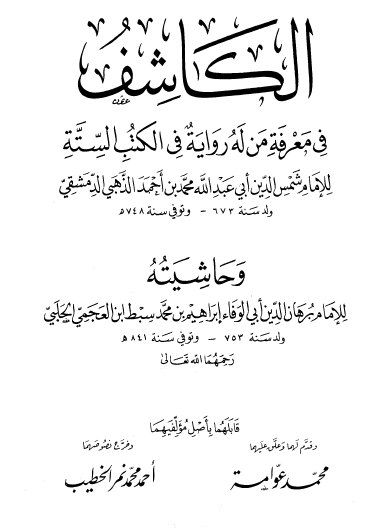 الكاشف
في معرفة من له رواية في الكتب الستة
للإمام شمس الدين أبي عبد الله محمد بن أحمد الذهبي الدمشقي
ولد سنة ٦٧٣ - وتوفي سنة ٧٤٨ ه
وحاشيته
للإمام برهان الدين أبي الوفاء إبراهيم بن محمد سبط ابن العجمي الحلبي
ولد سنة ٧٥٣ - وتوفي سنة ٨٤١ ه
رحمهما الله تعالى
قابلهما بأصل مؤلفيهما
وقدم لهما وعلق عليهما
محمد عوامة
وخرج نصوصهما
أحمد محمد نمر الخطيب